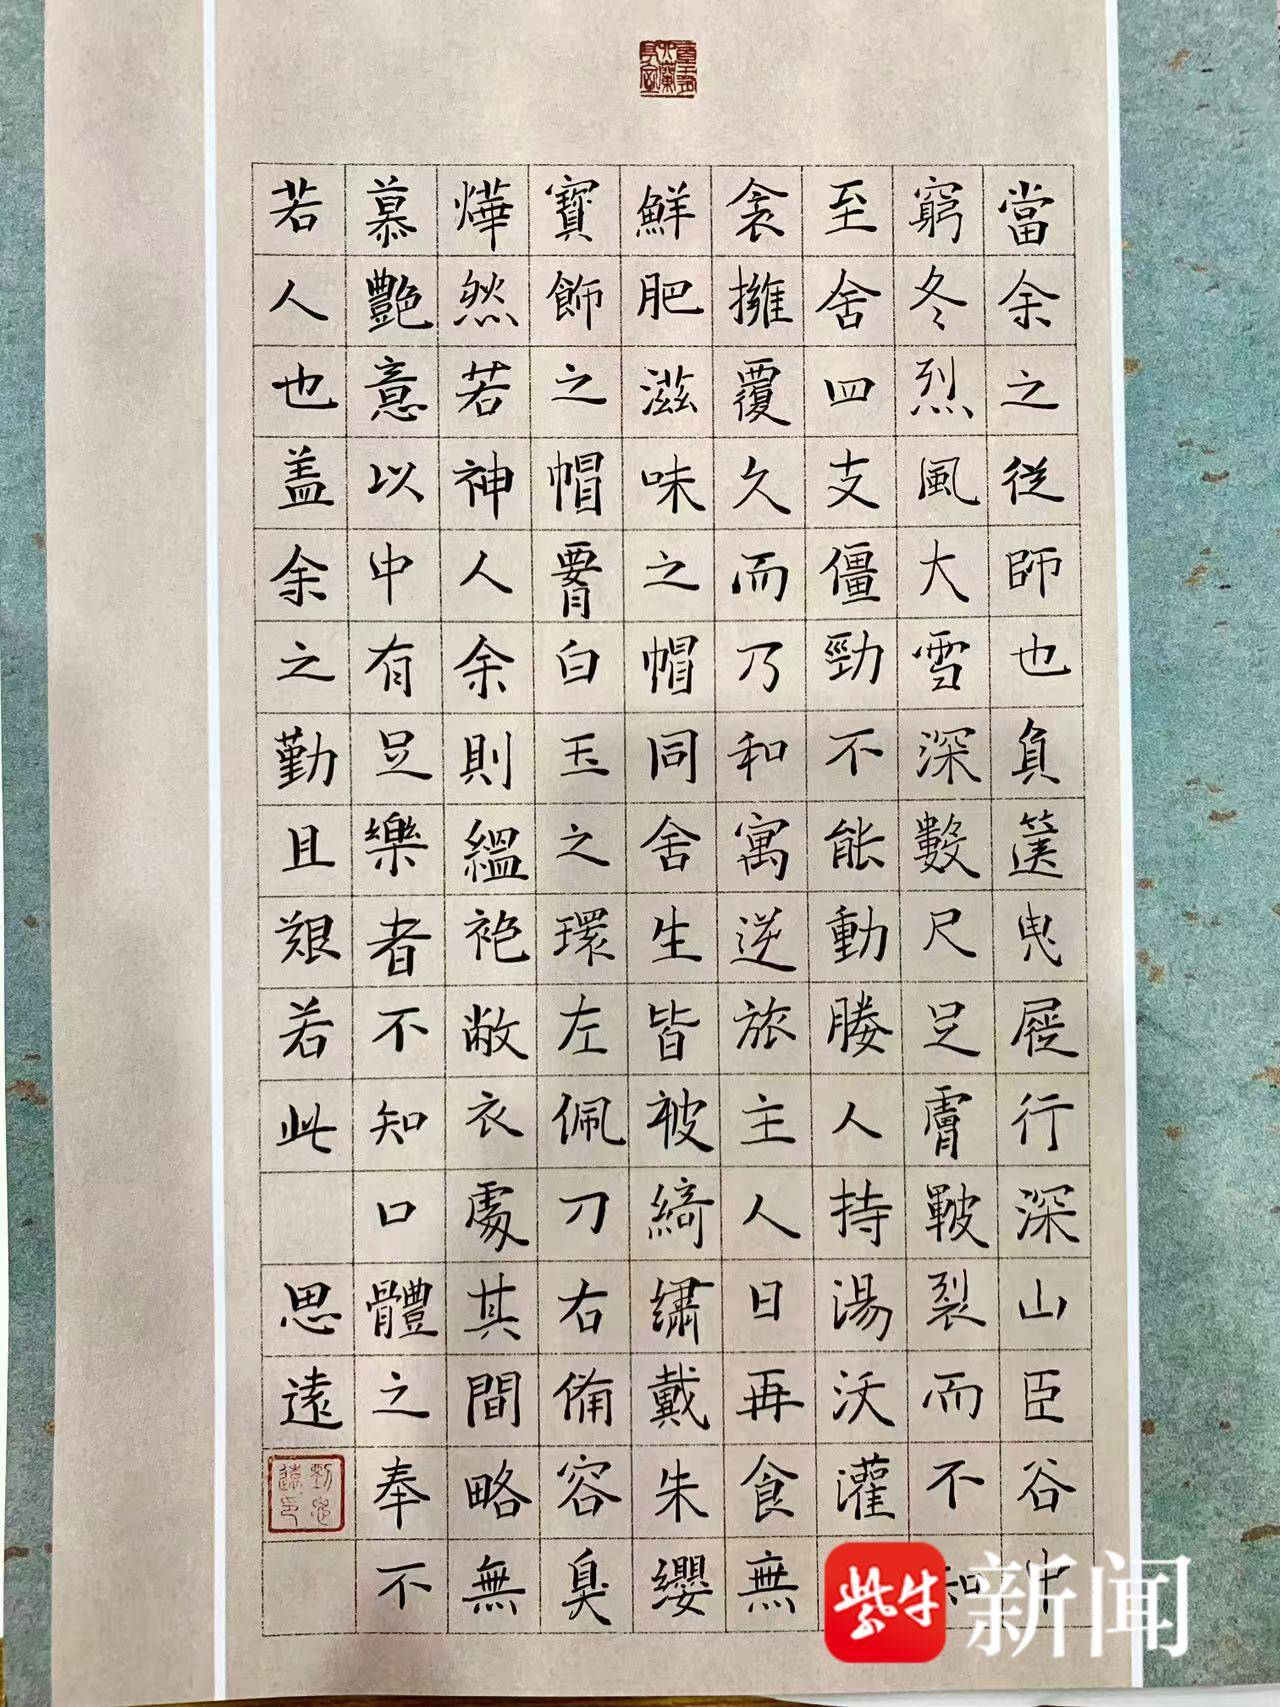 當余之從師也負篋曳屣行深山臣谷中
窮冬烈風大雪深數尺足膚皸裂而不知
至舍四支僵勁不能動媵人持湯沃灌
衾擁覆久而乃和寓逆旅主人日再食無
鮮肥滋味之帽同舍生皆被綺繡戴朱纓
寶飾之帽腰白玉之環左佩刀右備容臭
燁然若神人余則縕袍敝衣處其間略無
慕艷意以中有足樂者不知口體之奉不
若人也盖余之勤且艱若此 思遠
紫牛新闻